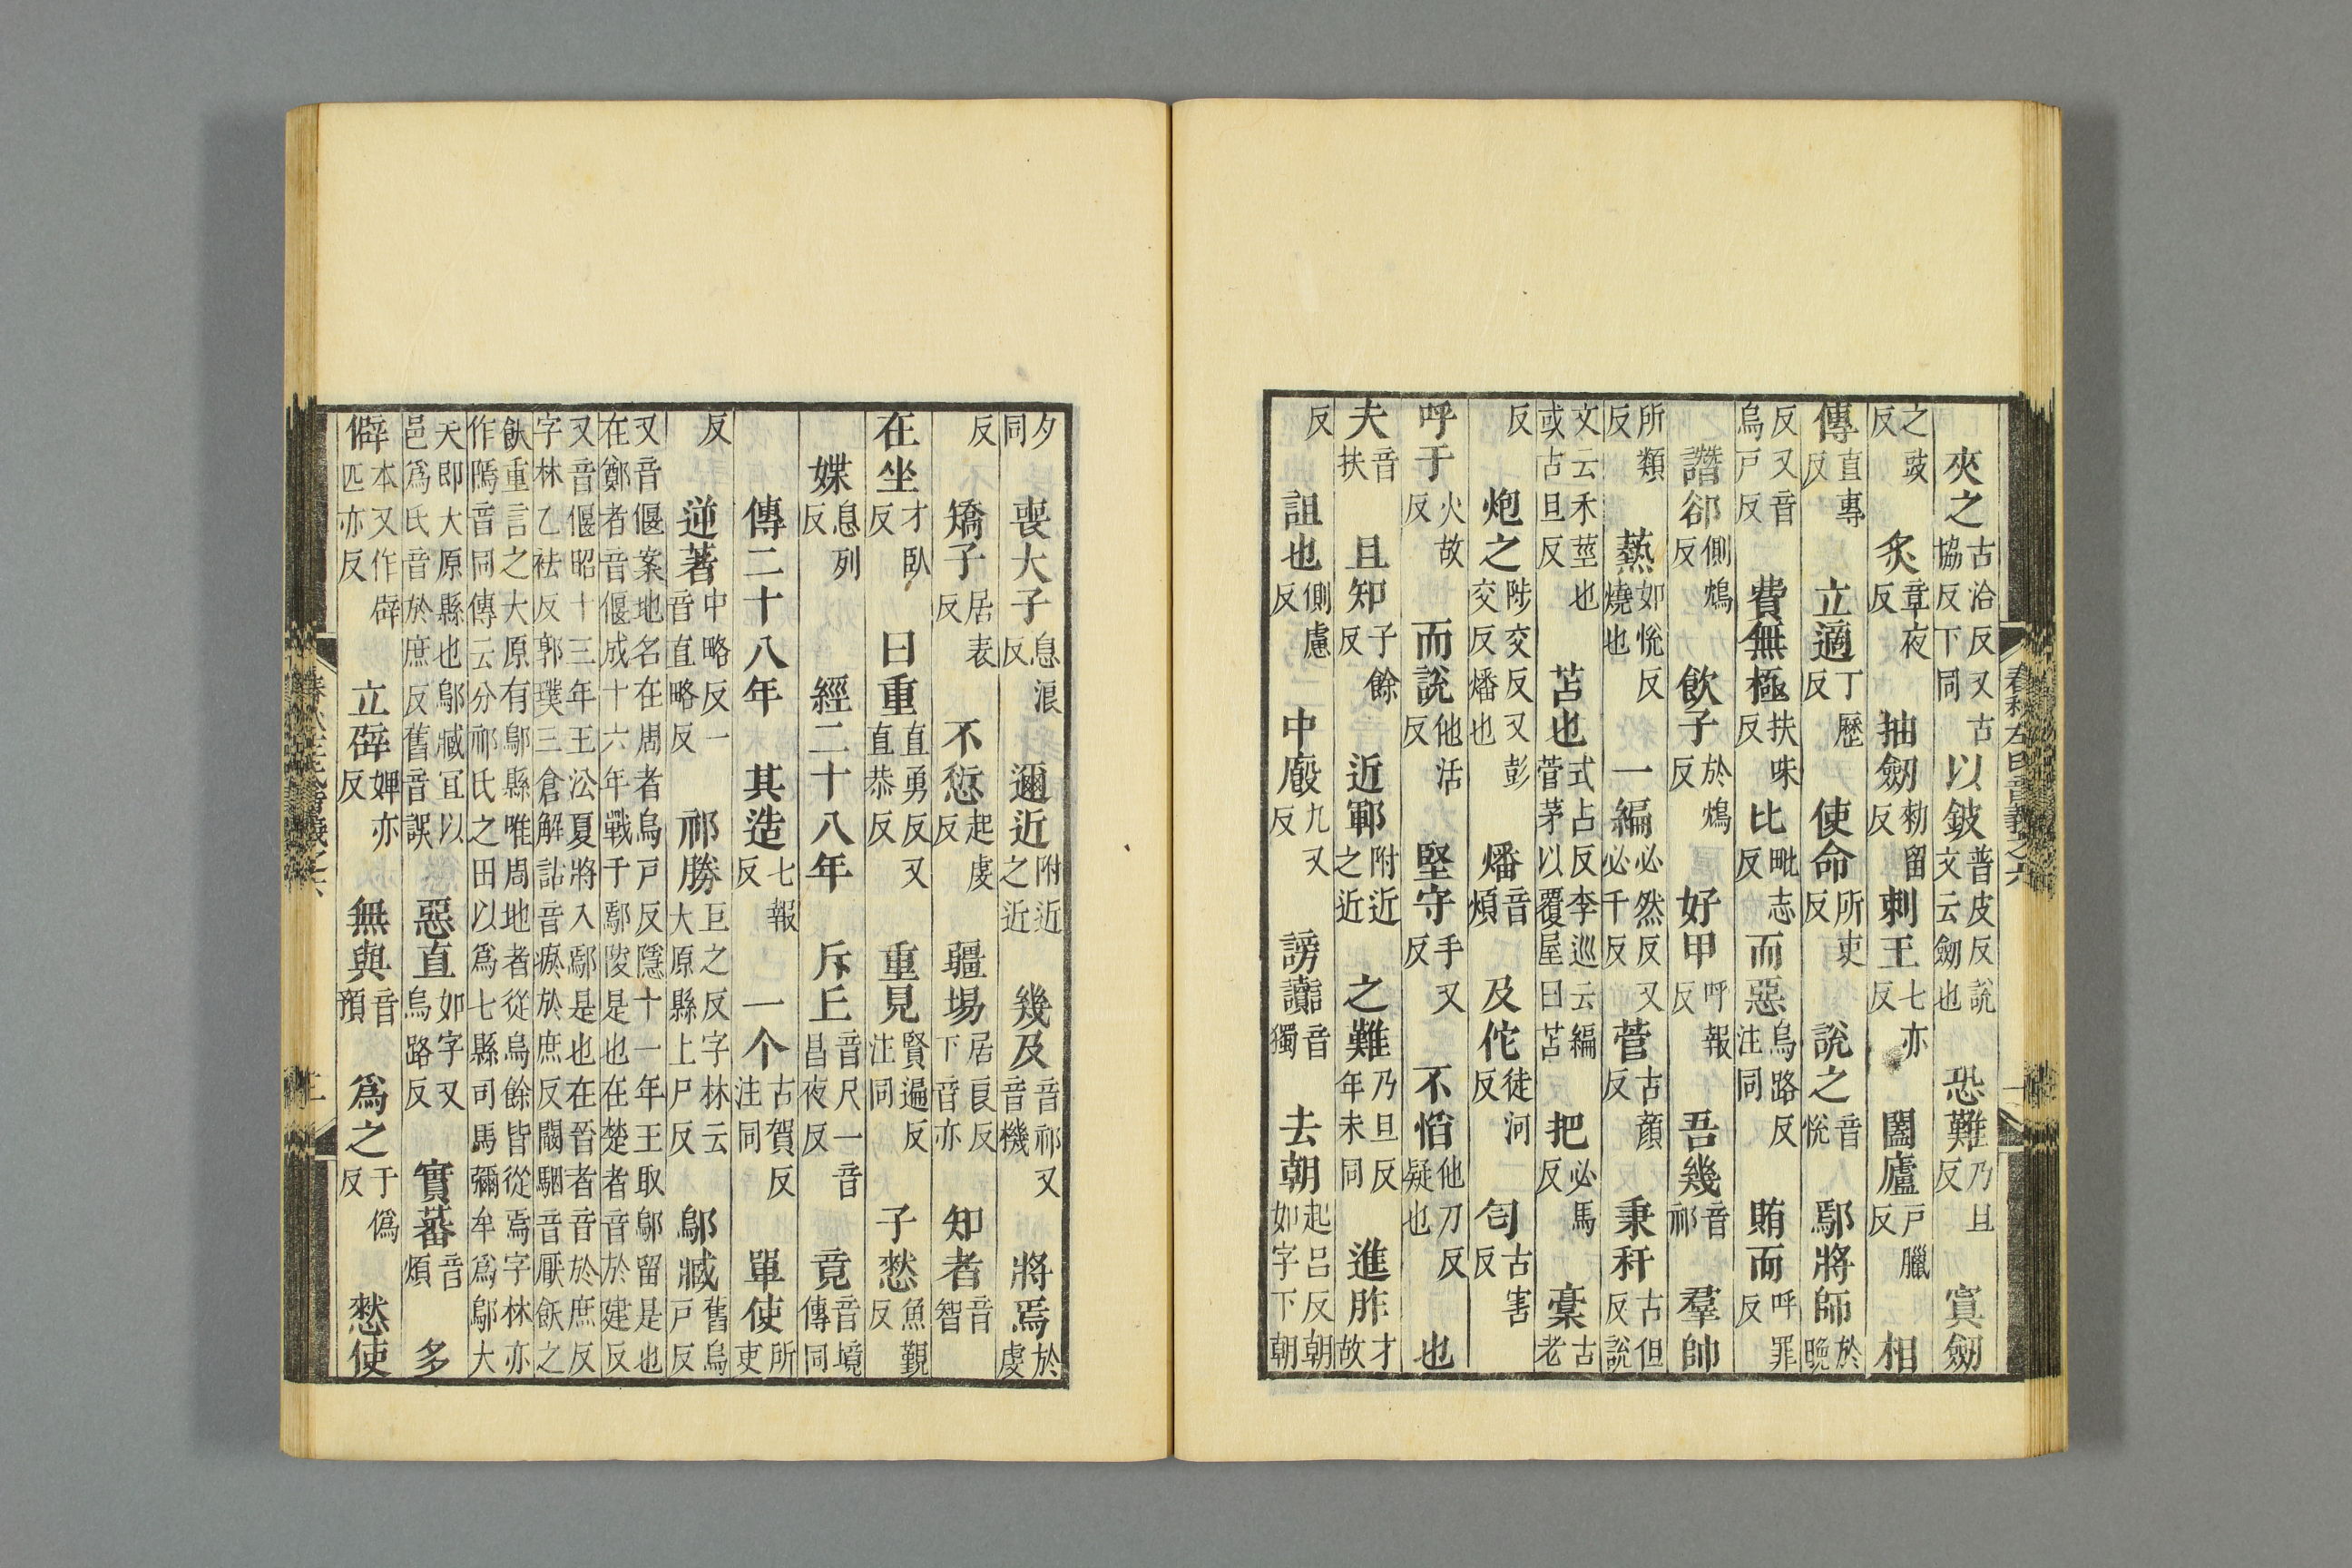 夾之古洽反又古協反下同以鈹普皮反說文云劒也恐難乃旦反寘劒
之豉反炙章夜反抽劒勑留反刺王七亦反闔廬戶臘反相
傳直專反立適丁歷反使命所吏反說之音悅鄢將師於晚
反又音烏戶反費無極扶味反比毗志反而惡烏路反注同賄而呼罪反
譖郤側鴆反飲子於鴆反好甲呼報反吾幾音祁羣帥
所類反爇如悅反燒也一編必然反又必千反菅古顏反秉秆古但反說
文云禾莖也或古旦反苫也式占反李巡云編菅茅以覆屋曰苫把必馬反稾古老
反炮之陟交反又彭交反燔也燔音煩及佗徒河反匄古害反
呼于火故反而說他活反堅守手又反不慆他刀反疑也也
夫音扶且知子餘反近鄆附近之近之難乃旦反年未同進胙才故
反詛也側慮反中廏九又反謗讟音獨去朝起呂反朝如字下朝
夕同喪大子息浪反邇近附近之近幾及音祁又音機將焉於虔
反矯子居表反不愆起虔反疆埸居良反下音亦知者音智
在坐才臥反曰重直勇反又直恭反重見賢遍反注同子憖魚覲反
媟息列反經二十八年斥丘音尺一音昌夜反竟音境傳同
傳二十八年其造七報反一个古賀反注同單使所吏
反逆著中略反一音直略反祁勝巨之反字林云大原縣上尸反鄔臧舊烏戶反
又音偃案地名在周者烏戶反隱十一年王取鄔留是也在鄭者音偃成十六年戰于鄢陵是也在楚者音於建反
又音偃昭十三年王㳂夏將入鄢是也在晉者音於庶反字林乙袪反郭璞三倉解詁音瘀於庶反闞駰音厭飫之
飫重言之大原有鄔縣唯周地者從烏餘皆從焉字林亦作隖音同傳云分祁氏之田以爲七縣司馬彌牟爲鄔大
夫即大原縣也鄔臧宜以邑爲氏音於庶反舊音誤惡直如字又烏路反實蕃音煩多
僻本又作辟匹亦反立辟婢亦反無與音預爲之于僞反憖使
春秋左氏音義之六